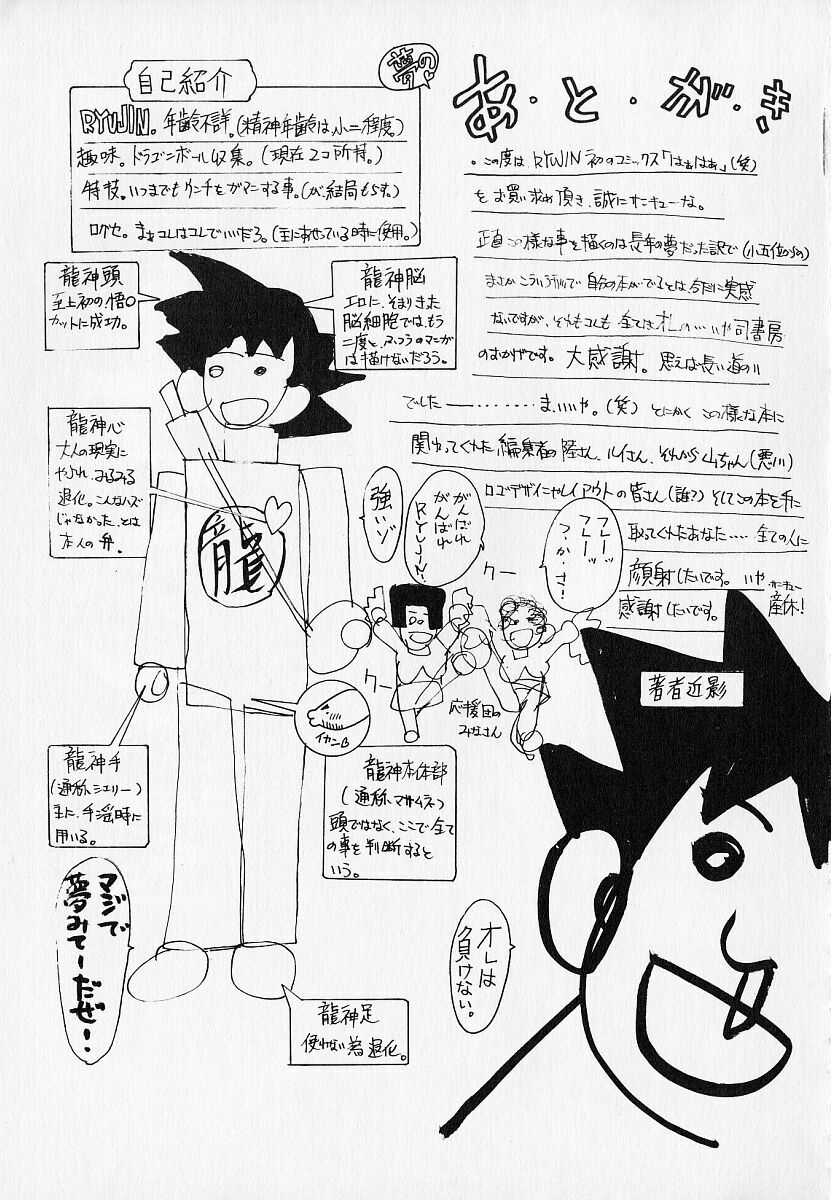 あ・と・が・き
・この度は RYUJIN 初のコミックス「はぁはぁ」(笑)
をお買い求め頂き、誠にサンキューな。
正直この様な事を描くのは長年の夢だった訳で(小五位からの)
まさかこういう
で自分の本がでるとは、今だに実感
ないですが、それもコレも全ては
司書房
のおかげです。大感謝。思えば長い道のり
でした ー………ま、いいや。(笑) とにかくこの様な本に
関わってくれた編集者の陸さん、ルイさん、それから山ちゃん(悪川)
ロゴデザインやレイアウトの皆さん(誰?)そしてこの本を手に
取ってくれたあなた……全ての人に
顔射したいです。いや、
感謝したいです。
サンキュー
産休!
夢の♡
自己紹介
RYUJIN。年齢不詳。(精神年齢は小二程度)
趣味。ドラゴンボール収集。(現在2コ所持。)
特技。いつまでもウンチをガマンする事。(が、結局もらす。)
口グセ。まぁコレはコレでいいだろ。(主にあせっている時に使用。)
龍神頭
至上初の悟○
カットに成功。
龍神脳
エロに、そまりきった
脳細胞では、もう
二度と、ふつうのマンガ
は描けないだろう。
龍神心
大人の現実に
やぶれ、みるみる
退化。こんなハズ
じゃなかった、とは
本人の弁。
龍
強いゾ
がんばれ
がんばれ
RYUJIN!
フレーッ
フレーッ
つ・か・さ!
クー
クー
応援団の
みなさん
著者近影
イカンB
龍神手
(通称、シェリー)
主に、手淫時に
用いる。
龍神本体部
(通称、マサムネ)
頭ではなく、ここで全て
の事を判断すると
いう。
マジで
夢みてーだぜ!
オレは
負けない。
龍神足
使わない為、退化。